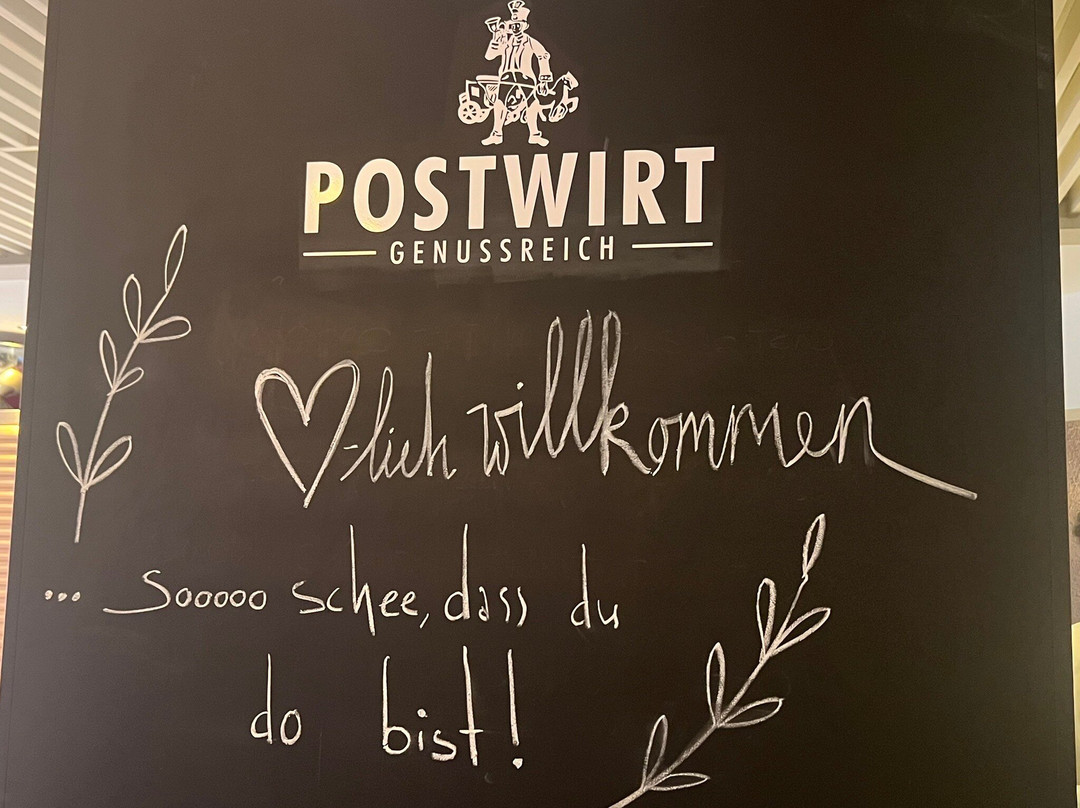 POSTWIRT
GENUSSREICH
♡-lich willkommen
... Sooooo schee, dass du
do bist!